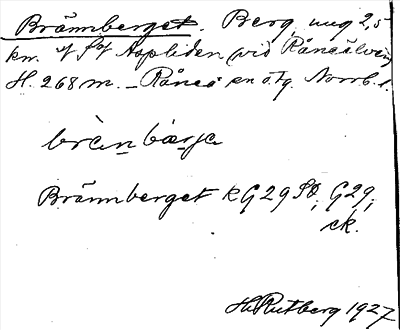 Brännberget. Berg, ung 2,5
km. Aspliden (vid Råneälven)
H. 268 m. – Råneå sn ö. tg. Norrb. l.
brànbærjə
Brännberget kG29SO; G29;
ek.
H. Rutberg 1927